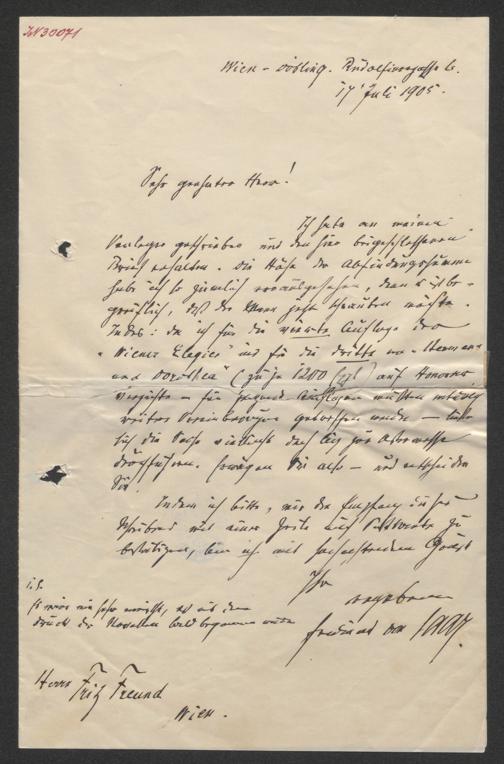 IN 30071
Wien - Döbling. Rudolfinergasse 6.
17 Juli 1905.
Sehr geehrter Herr!
Ich habe an meinen
Verleger geschrieben und den hier beigeschlossenen
Brief erhalten. Die Höhe der Abfindungssumme
habe ich so ziemlich vorausgesehen, denn es ist be-
greiflich, daß der Mann jetzt schrauben möchte.
Indes: da ich für die vierte Auflage der
"Wiener Elegien" und für die dritte von "Hermann
und Dorothea" (zu je 1200 Expl) auf Honorar
verzichte - für Auflagen müßten
weitere Vereinbarungen getroffen werden - ließe
sich die Sache vielleicht doch bis zur
durchführen. Erwägen Sie also - und entscheiden
Sie!
Indem ich bitte, mir den Empfang dieses
Schreibens mit einer Zeile zu
bestätigen, bin ich mit hochachtendem Gruß
Ihr
ergebener
Ferdinand von Saar.
Es wäre mir sehr erwünscht, wenn mit dem
Druck der Novellen bald begonnen würde
Herrn Fritz Freund
Wien.